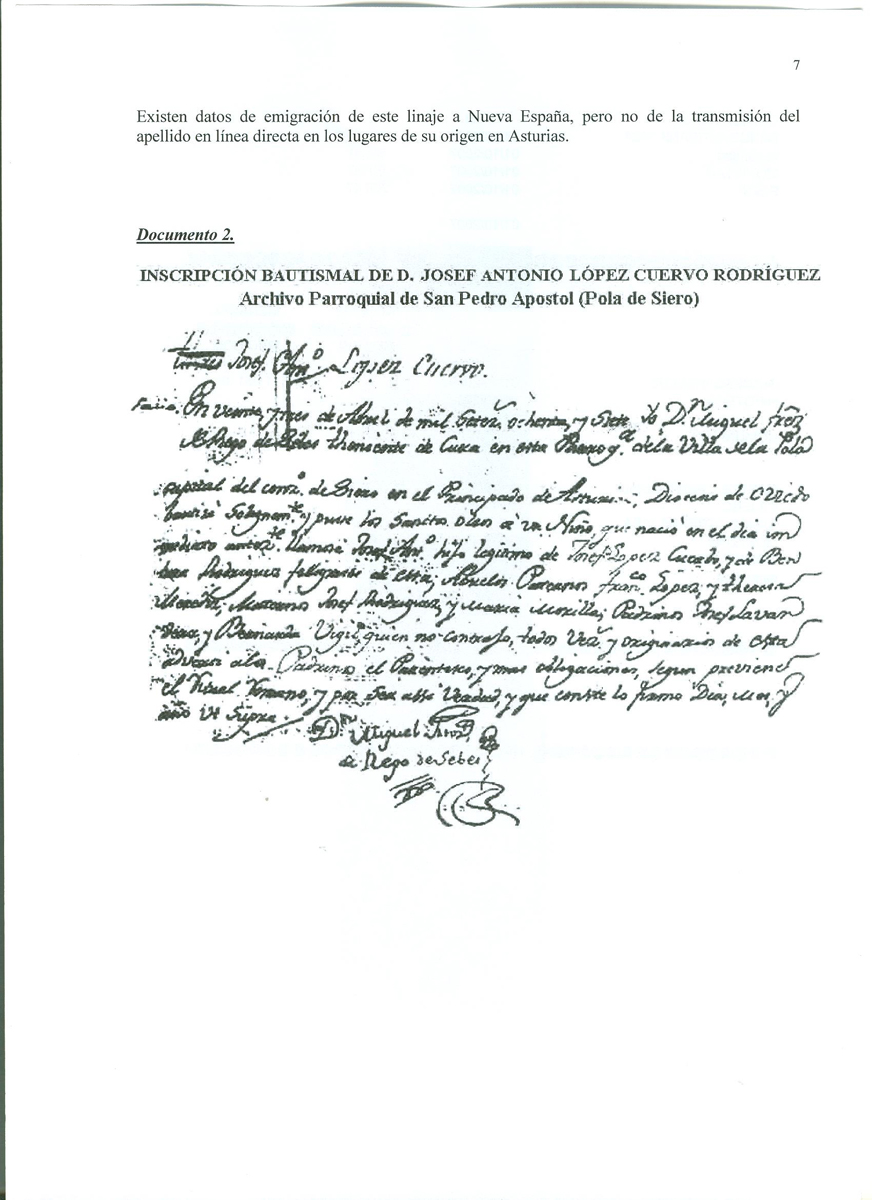 7
Existen datos de emigración de este linaje a Nueva España, pero no de la transmisión del
apellido en línea directa en los lugares de su origen en Asturias.
Documento 2.
INSCRIPCIÓN BAUTISMAL DE D. JOSEF ANTONIO LÓPEZ CUERVO RODRÍGUEZ
Archivo Parroquial de San Pedro Apostol (Pola de Siero)
Josef Anto. Lopez Cuervo.
En veinte y tres de Abril de mil setez. ochenta, y siete Yo Dn. Miguel
de Cura en esta Parroq.a de la Villa de la Pola
capital del conz.o de Siero en el Principado de Asturias, Diocesis de Oviedo
bautizé Solegnem.te y puse los Santos Oleos a un Niño, que nació en el dia inm
mediato antez.te llamose Josef Ant.o hijo legitimo de Josef Lopez y de Ber
Rodriguez feligreses de esta, Abuelos Paternos Fran.co Lopez, y
Maternos Josef Rodriguez, y Maria Padrinos Josef Lavan
dera, y Bernarda Vigil, quien no contraxo, todos Vez.s y originarios de esta
advertí a los Padrinos el Parentesco, y mas obligaciones, segun previene
el Ritual Romano, y por ser assi Verdad, y que conste lo firmo Dia, Mes, y
año Ut Supra.
Dn. Miguel